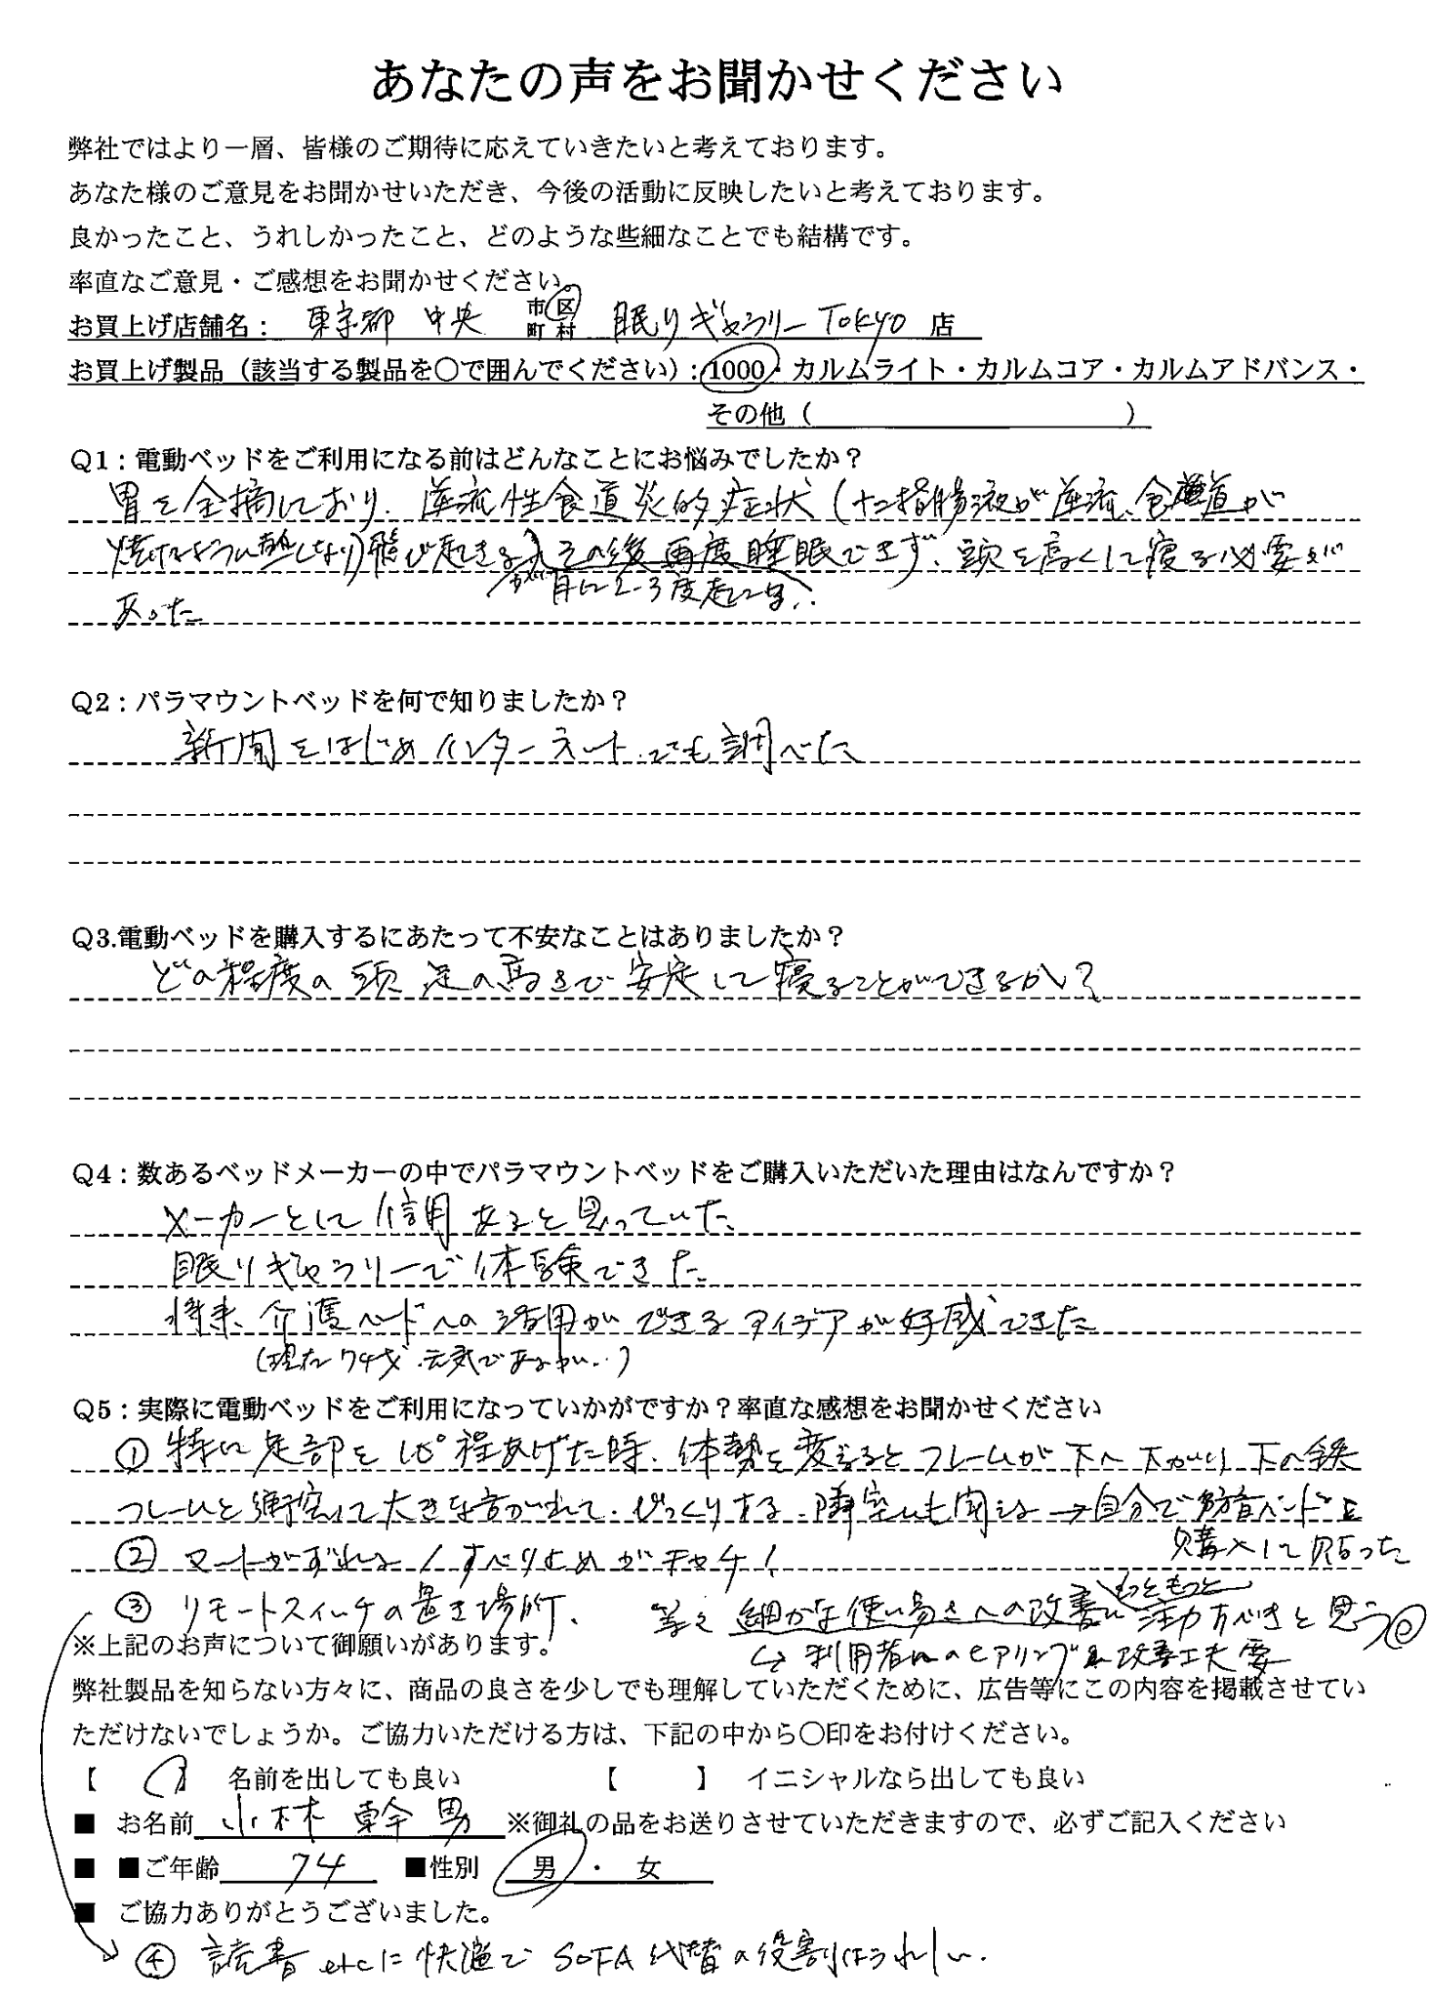 あなたの声をお聞かせください
弊社ではより一層、皆様のご期待に応えていきたいと考えております。
あなた様のご意見をお聞かせいただき、今後の活動に反映したいと考えております。
良かったこと、うれしかったこと、どのような些細なことでも結構です。
率直なご意見・ご感想をお聞かせください。
お買上げ店舗名： 東京都 中央 市区町村 眠りギャラリーTOKYO 店
お買上げ製品（該当する製品を〇で囲んでください）：1000・カルムライト・カルムコア・カルムアドバンス・
その他（　　　　）
Q1：電動ベッドをご利用になる前はどんなことにお悩みでしたか？
胃を全摘しており、逆流性食道炎的症状（十二指腸液が逆流、食道が
焼けるように熱くなり）飛び起きる その後再度睡眠できず、頭を高くして寝る必要が
月に2-3度
あった
Q2：パラマウントベッドを何で知りましたか？
新聞をはじめインターネットでも調べた
Q3.電動ベッドを購入するにあたって不安なことはありましたか？
どの程度の頭、足の高さで安定して寝ることができるか？
Q4：数あるベッドメーカーの中でパラマウントベッドをご購入いただいた理由はなんですか？
メーカーとして信用あると思っていた
眠りギャラリーで体験できた
将来、介護ベッドへの活用ができるアイデアが好感できた
（現在74才、元気であるが…）
Q5：実際に電動ベッドをご利用になっていかがですか？率直な感想をお聞かせください
① 特に足部を10°程あげた時、体勢を変えるとフレームが下へ下がり下の鉄
フレームと衝突して大きな音がして、びっくりする。隣室にも聞える→自分で防音バンドを
購入して貼った
② マットがずれる！すべり止めがチャチ！
③ リモートスイッチの置き場所、 等々 細かな使い易さへの改善にもっともっと注力すべきと思う
↳ 利用者へのヒアリング&改善工夫要
※上記のお声について御願いがあります。
弊社製品を知らない方々に、商品の良さを少しでも理解していただくために、広告等にこの内容を掲載させてい
ただけないでしょうか。ご協力いただける方は、下記の中から〇印をお付けください。
【 〇 】 名前を出しても良い 【　　】 イニシャルなら出しても良い
■ お名前 小林 幹男 ※御礼の品をお送りさせていただきますので、必ずご記入ください
■ ■ご年齢 74 ■性別 男 ・ 女
■ ご協力ありがとうございました。
④ 読書etcに快適でSOFA代替の役割はうれしい.